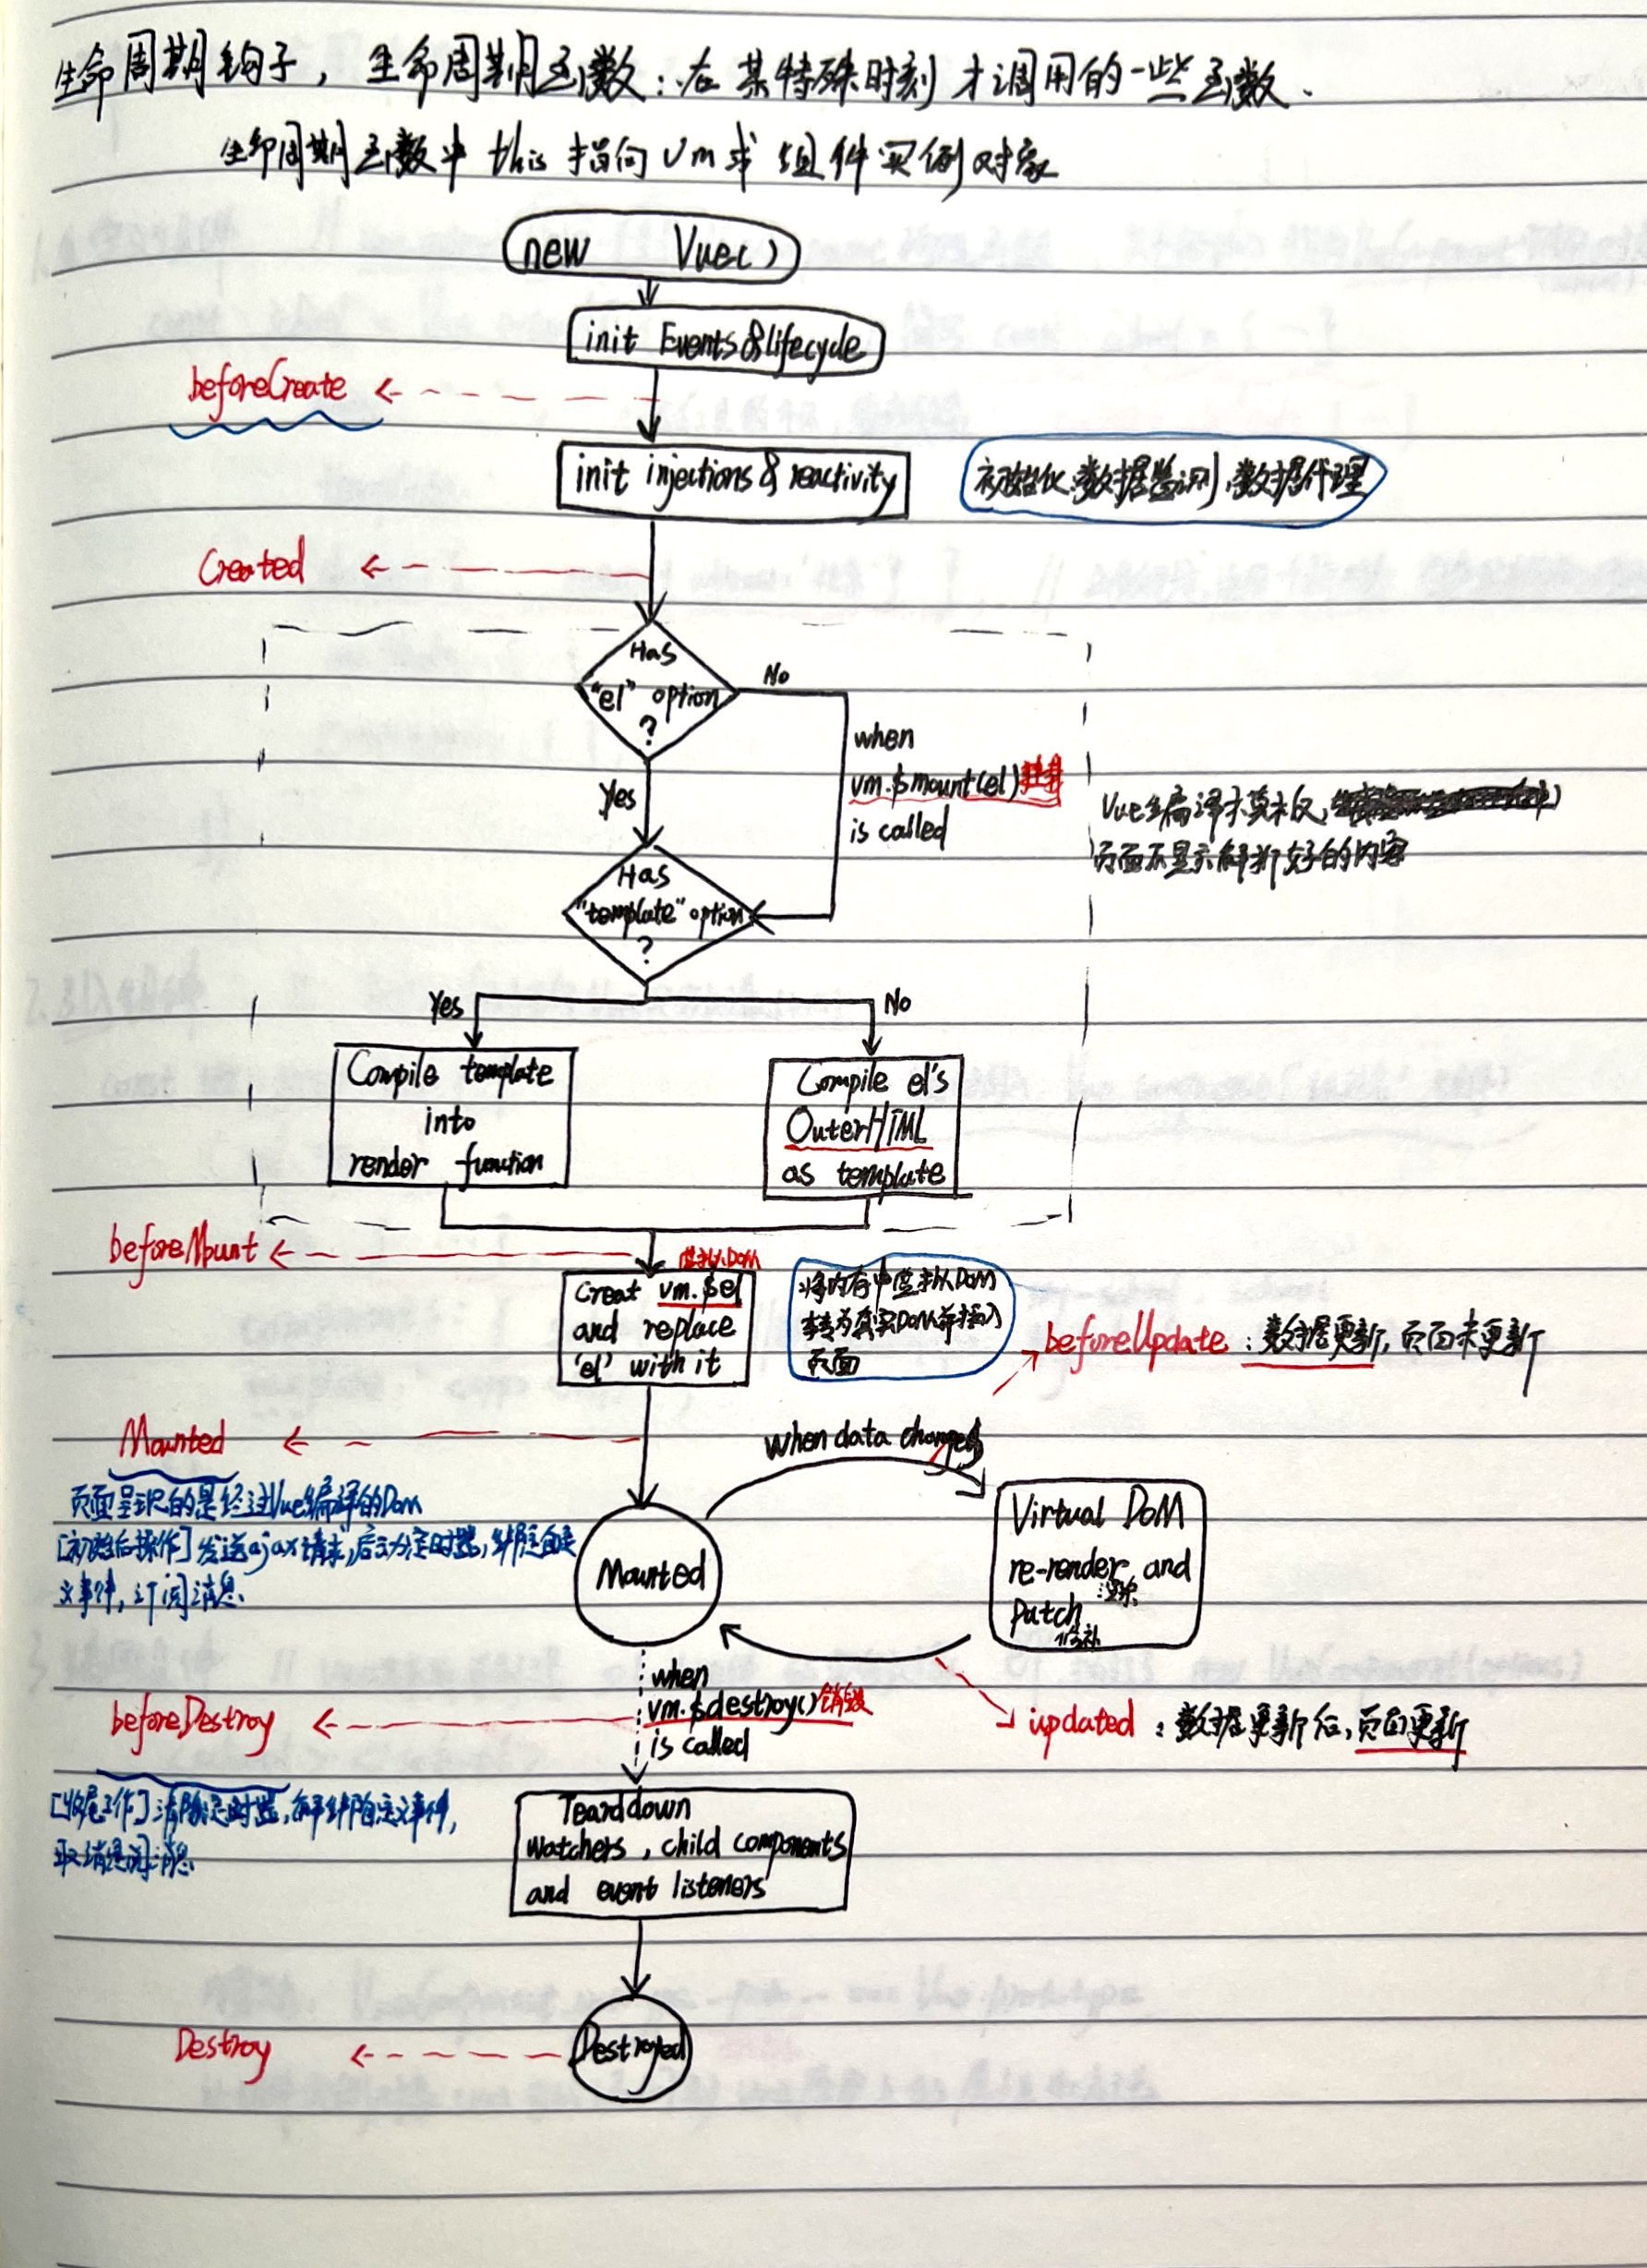 生命周期钩子，生命周期函数：在某特殊时刻才调用的一些函数.
生命周期函数中 this 指向 vm 或 组件实例对象
new Vue()
init Events&lifecycle
beforeCreate
init injections & reactivity
初始化.数据监测,数据代理
Created
Has
"el" option
?
No
when
vm.$mount(el)挂载
is called
Yes
Vue编译未模板,
页面不显示解析好的内容
Has
"template" option
?
Yes
No
Compile template
into
render function
Compile el's
OuterHTML
as template
beforeMount
虚拟DOM
Creat vm.$el
and replace
'el' with it
将内存中虚拟DOM
转为真实DOM并插入
页面
beforeUpdate：数据更新,页面未更新
Mounted
when data changes
页面呈现的是经过Vue编译的Dom
[初始后操作]发送ajax请求,启动定时器,绑定自定
义事件,订阅消息.
Mounted
Virtual DOM
re-render and
渲染
Patch
修补
when
vm.$destroy()销毁
is called
beforeDestroy
updated：数据更新后,页面更新
[收尾工作]清除定时器,解绑自定义事件,
取消订阅消息
Tearddown
watchers, child components
and event listeners
Destroy
Destroyed